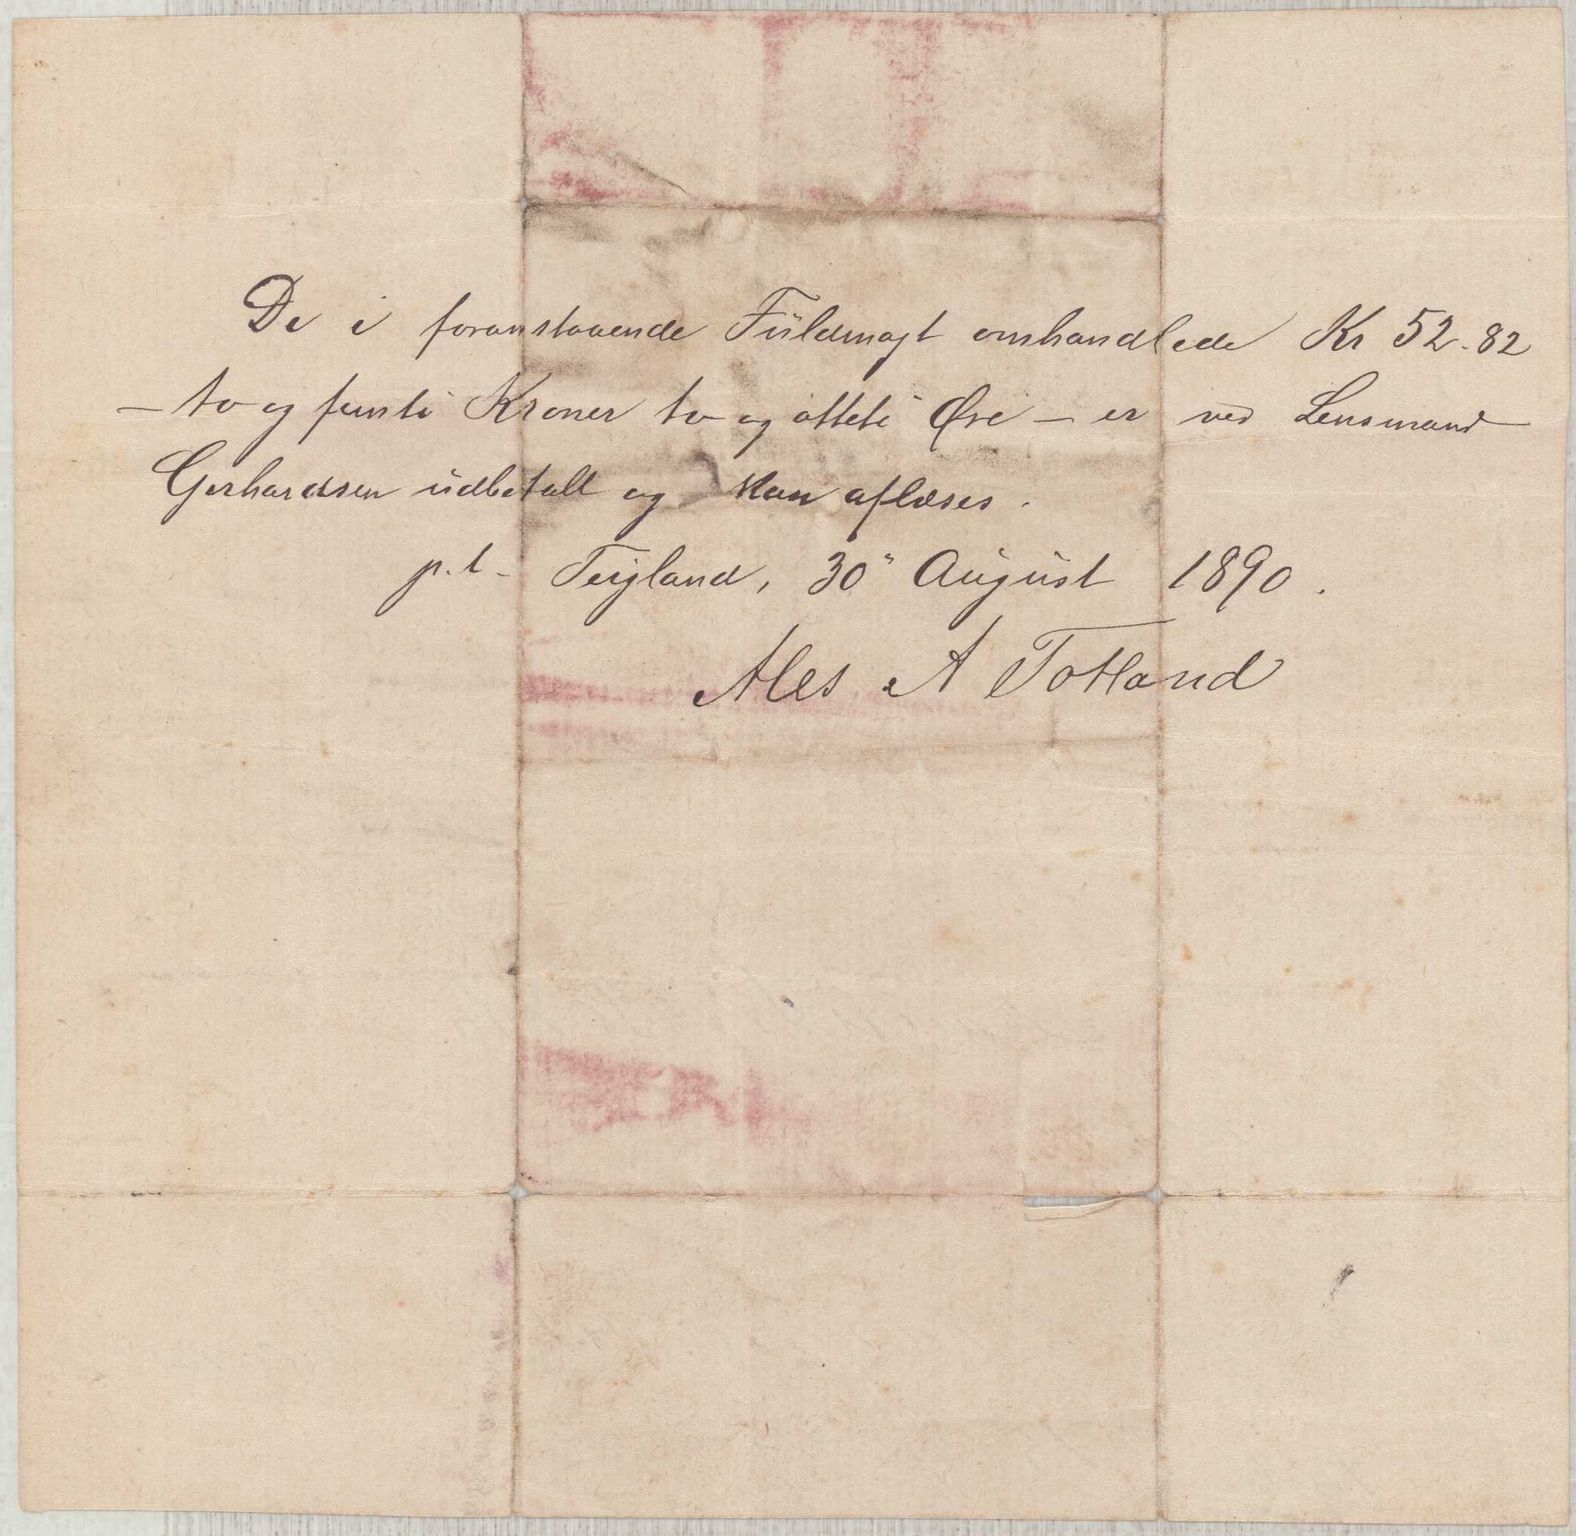 De i foranstaaende Fuldmagt omhandlede Kr 52.82
– to og femti Kroner to og otteti Øre – er ved Lensmand
Gerhardsen udbetalt og kan aflæses.
p.t. Teigland, 30" August 1890.
A Totland